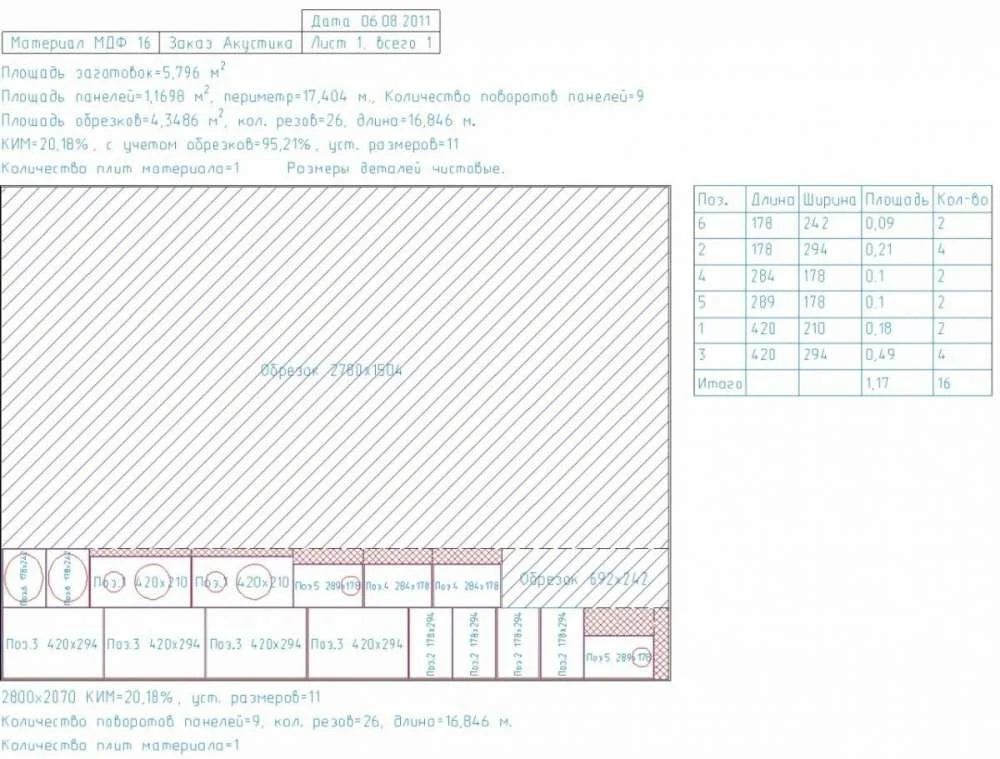 Дата 06 08 2011
Материал МДФ 16 Заказ Акустика Лист 1, всего 1
Площадь заготовок=5,796 м2
Площадь панелей=1,1698 м2, периметр=17,404 м., Количество поворотов панелей=9
Площадь обрезков=4,3486 м2, кол. резов=26, длина=16,846 м.
КИМ=20,18%, с учетом обрезков=95,21%, уст. размеров=11
Количество плит материала=1 Размеры деталей чистовые.
Поз. Длина Ширина Площадь Кол-во
6 178 242 0,09 2
2 178 294 0,21 4
4 284 178 0.1 2
5 289 178 0.1 2
1 420 210 0,18 2
3 420 294 0,49 4
Итого 1,17 16
Обрезок 2780х1504
Поз.6 178х242
Поз.6 178х242
Поз.1 420х210
Поз.1 420х210
Поз.5 289х178
Поз.4 284х178
Поз.4 284х178
Обрезок 692х242
Поз.3 420х294
Поз.3 420х294
Поз.3 420х294
Поз.3 420х294
Поз.2 178х294
Поз.2 178х294
Поз.2 178х294
Поз.2 178х294
Поз.5 289х178
2800х2070 КИМ=20,18%, уст. размеров=11
Количество поворотов панелей=9, кол. резов=26, длина=16,846 м.
Количество плит материала=1